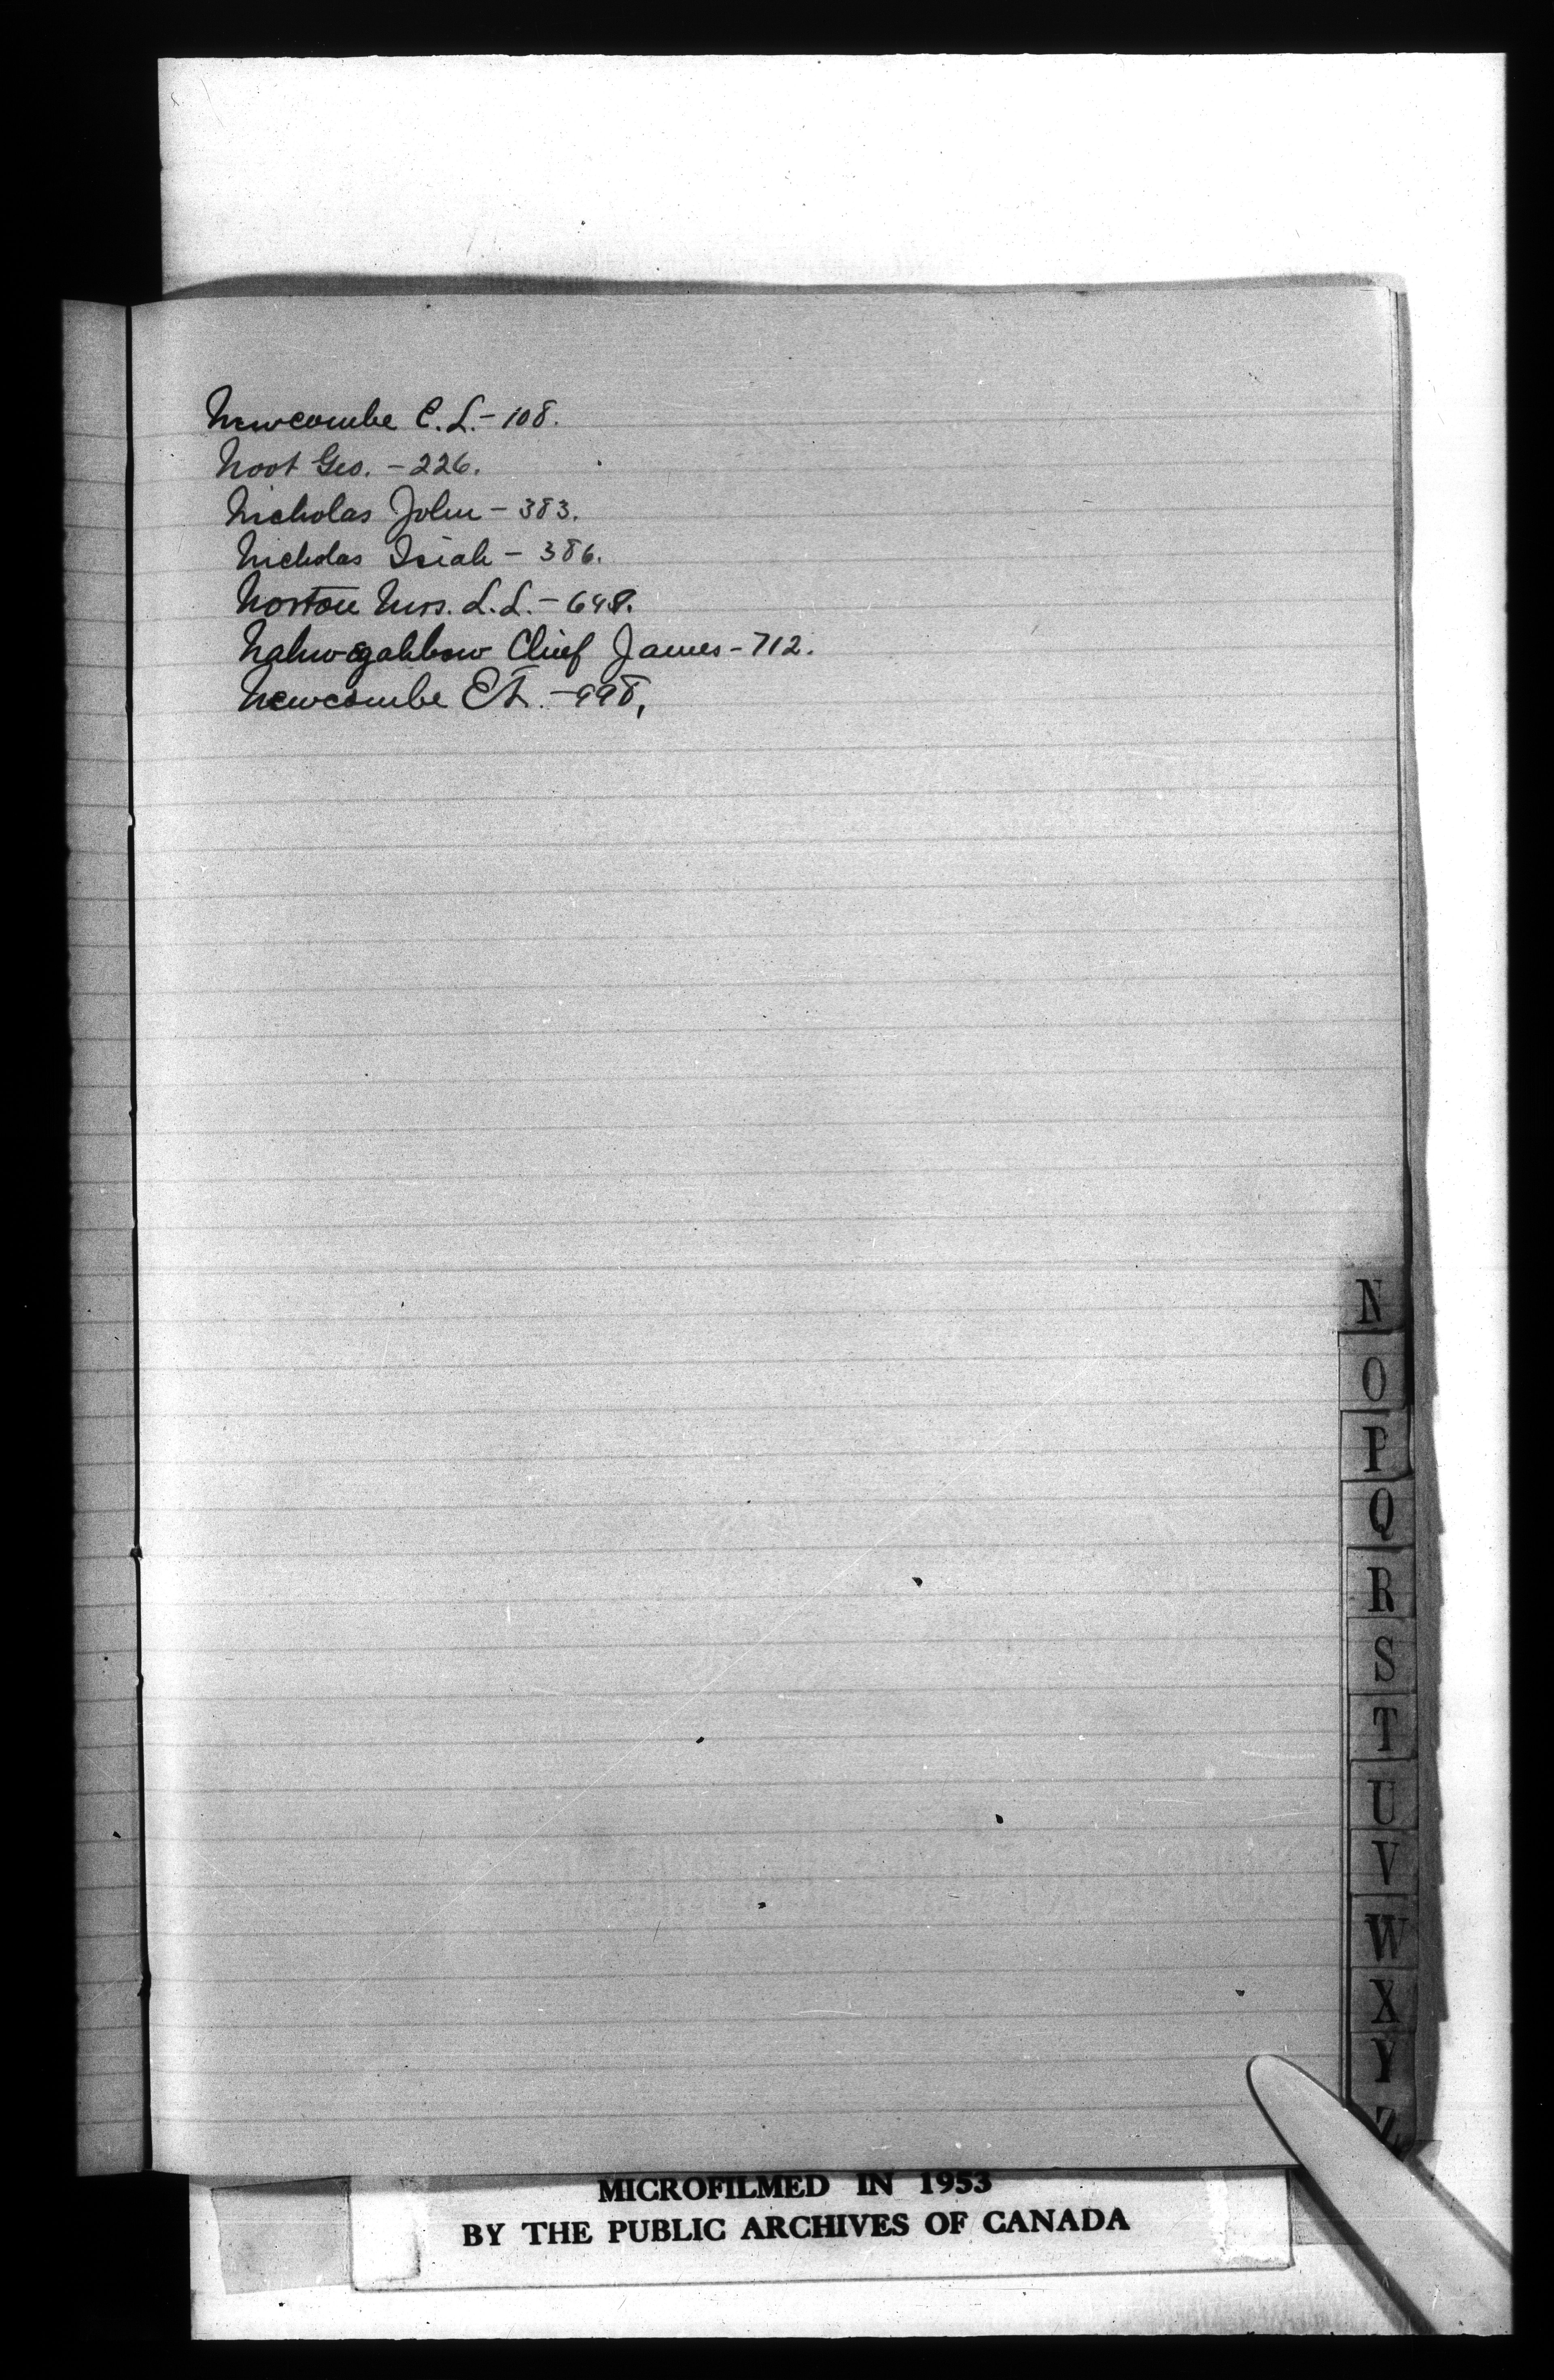 Newcombe C. L. - 108.
Noot Geo. - 226.
Nicholas John - 383.
Nicholas Isiah - 386.
Norton Mrs. L. L. - 698.
Nahwegahbow Chief James - 712.
Newcombe E L. - 998,
N
O
P
Q
R
S
T
U
V
W
X
Y
Z
MICROFILMED IN 1953
BY THE PUBLIC ARCHIVES OF CANADA